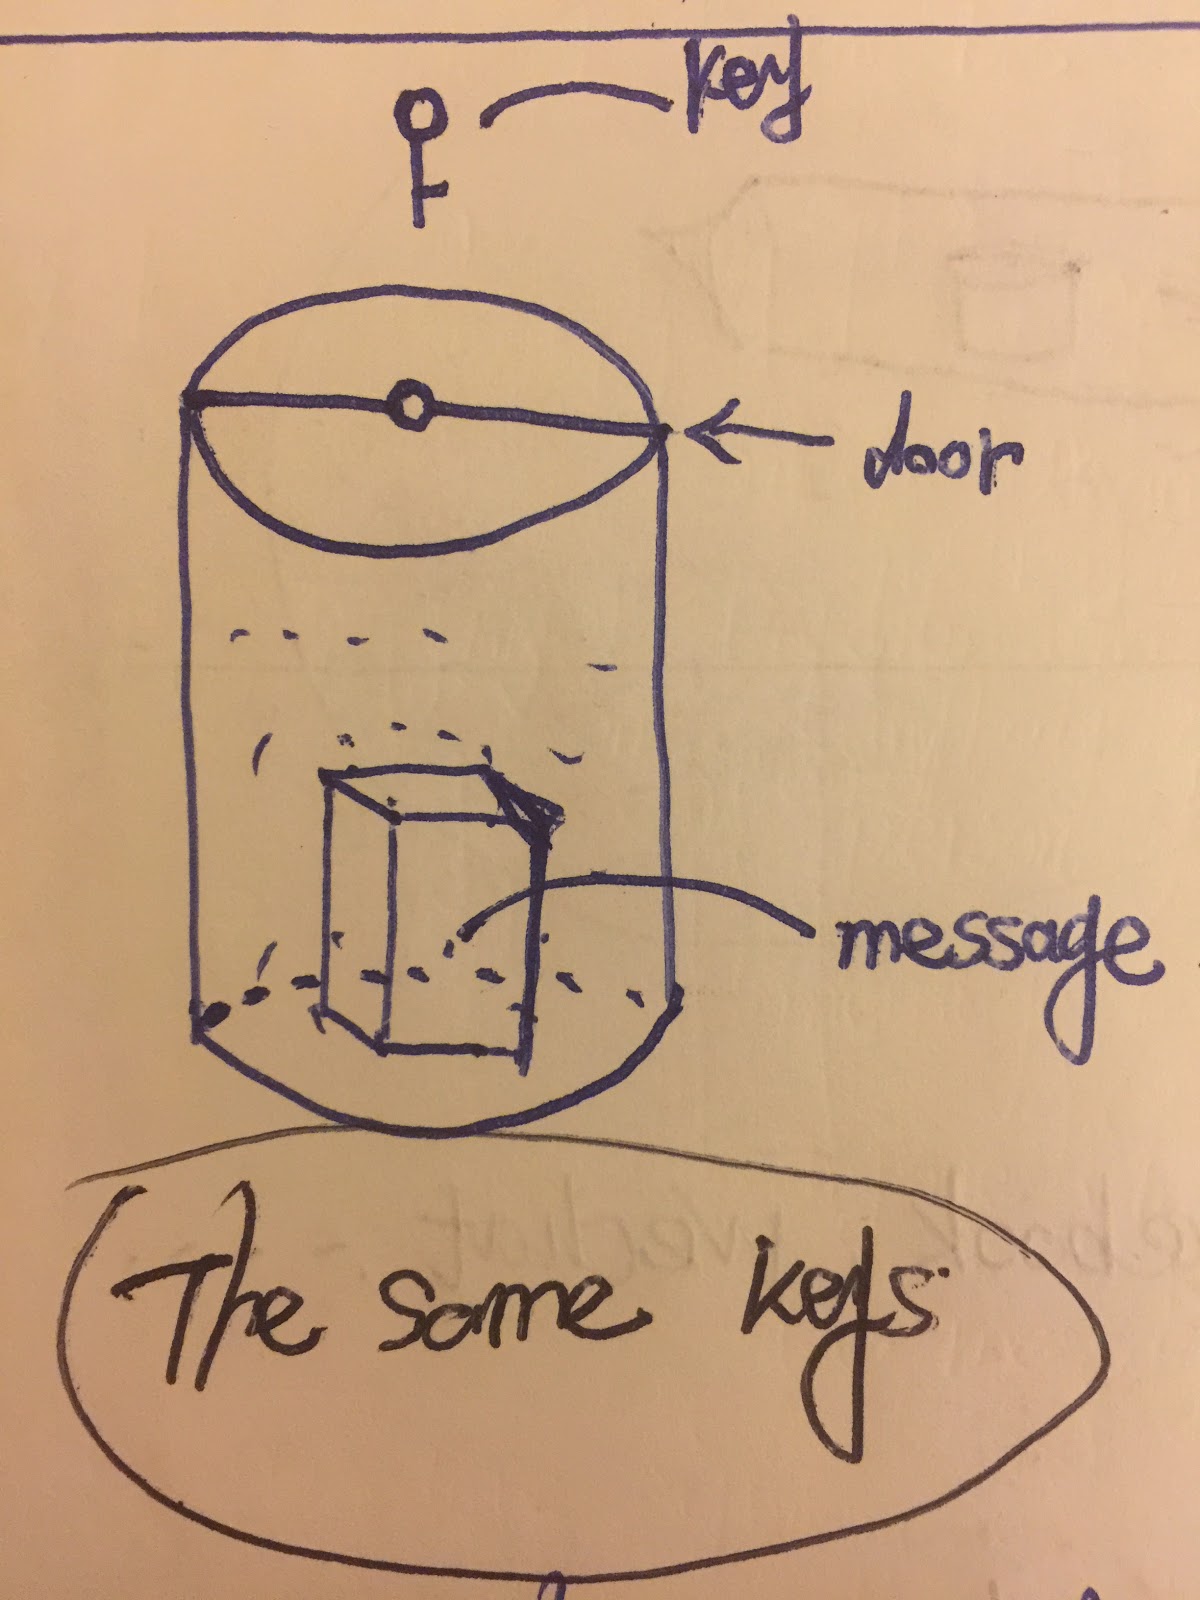 key
door
message
The same keys